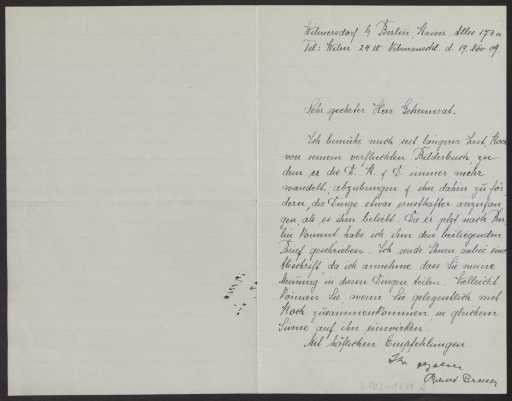 Wilmersdorf b/ Berlin, Kaiser Allee 172a
Tel: Wilm 24 Wilmersdf. d. 19. Nov 09.
Sehr geehrter Herr Geheimrat.
Ich bemühe mich seit längerer Zeit, Koch
von seinem verfluchten Bilderbuch, zu
dem er die D. K. f D immer mehr
wandelt, abzubringen & ihn dahin zu för
dern, die Dinge etwas ernsthafter anzufan
gen, als es ihm beliebt. Da er jetzt nach Ber
lin kommt habe ich ihm den beiliegenden
Brief geschrieben. Ich sende Ihnen anbei eine
Abschrift, da ich annehme dass Sie meine
Meinung in diesen Dingen teilen. Vielleicht
können Sie, wenn Sie gelegentlich mit
Koch zusammenkommen, in gleichem
Sinne auf ihn einwirken.
Mit höflichen Empfehlungen
Ihr ergebener